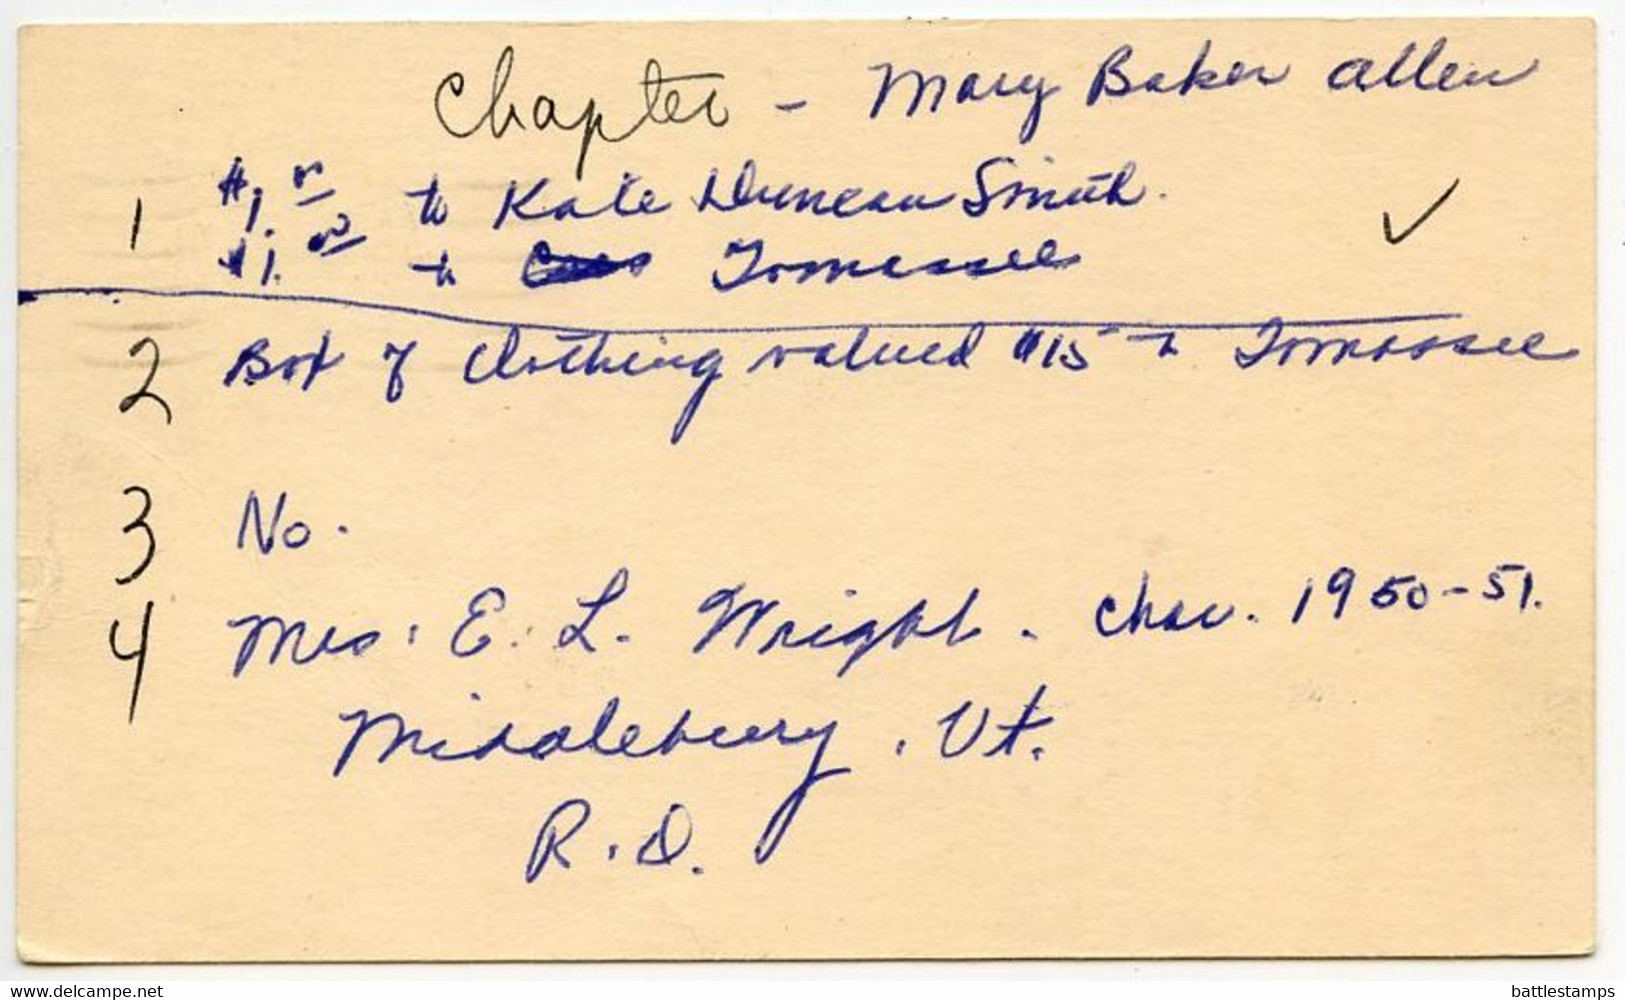 Chapter - Mary Baker Allen
1 $1.00 to Kate Duncan Smith. ✓
$1.00 to Tomassee
2 Box of clothing valued $15 to Tomassee
3 No.
4 Mrs. E. L. Wright. Chai. 1950-51.
Middlebury, Vt.
R.D.
www.delcampe.net
battlestamps